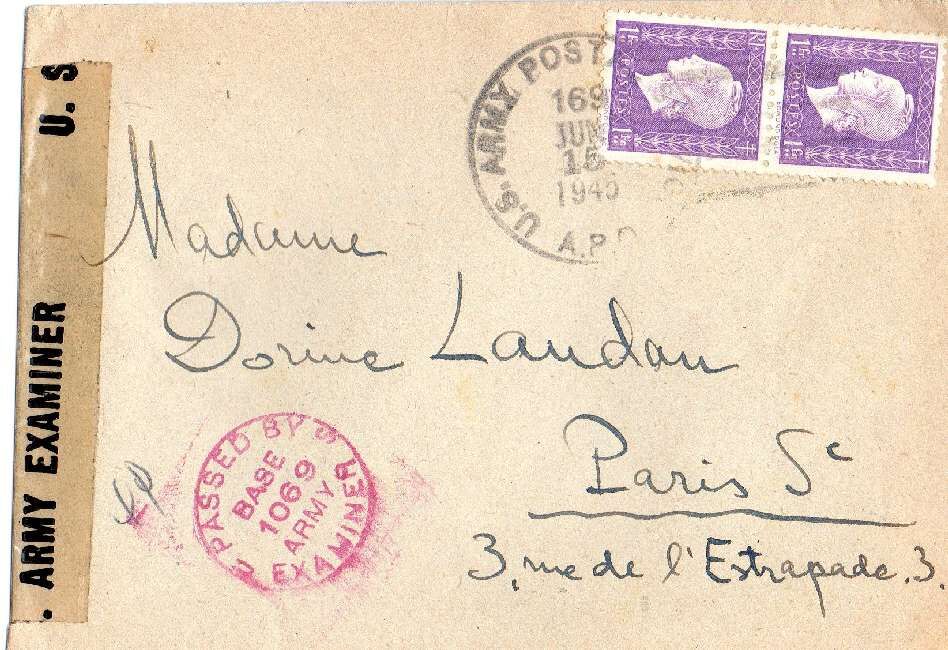 U.S. ARMY POSTAL
169
JUN
15
1945
A.P.O.
1F5
RF
POSTES
1F5
RF
POSTES
U. S
. ARMY EXAMINER
Madame
Dorine Landau
Paris 5e
3, rue de l'Estrapade. 3.
PASSED BY
BASE
1069
ARMY
EXAMINER